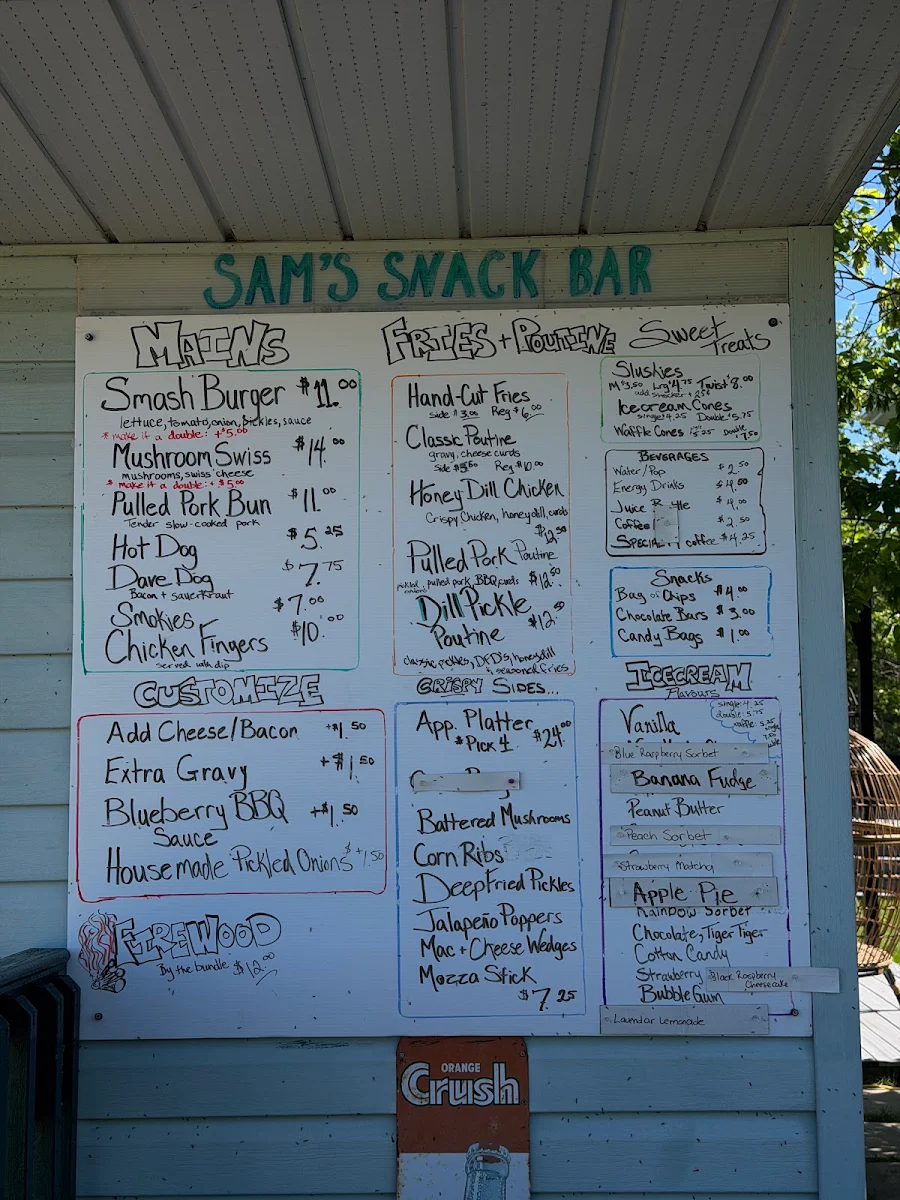 SAM'S SNACK BAR
MAINS
Smash Burger $11.00
lettuce, tomato, onion, pickles, sauce
* make it a double: +$5.00
Mushroom Swiss $14.00
mushrooms, swiss cheese
* make it a double: +$5.00
Pulled Pork Bun $11.00
Tender slow-cooked pork
Hot Dog $5.25
Dave Dog $7.75
Bacon + sauerkraut
Smokies $7.00
Chicken Fingers $10.00
served with dip
CUSTOMIZE
Add Cheese/Bacon +$1.50
Extra Gravy +$1.50
Blueberry BBQ +$1.50
Sauce
Housemade Pickled Onions +$1.50
FIREWOOD
By the bundle $12.00
FRIES + POUTINE
Hand-Cut Fries
Side $3.00 Reg $6.00
Classic Poutine
gravy, cheese curds
Side Reg $10.00
Honey Dill Chicken
Crispy Chicken, honey dill, curds
$12.50
Pulled Pork Poutine
pickled onions, pulled pork, BBQ, curds $12.50
Dill Pickle
Poutine $12.50
classic, pickles, DFD's, honey dill
+ seasoned fries
CRISPY SIDES...
App. Platter $24.00
*Pick 4
Battered Mushrooms
Corn Ribs
Deep Fried Pickles
Jalapeño Poppers
Mac + Cheese Wedges
Mozza Stick
$7.25
Sweet Treats
Slushies
M $3.50 Lrg $4.75 Twist $8.00
Icecream Cones
single 4.25 Double 5.75
Waffle Cones 5.25 Double 7.50
BEVERAGES
Water/Pop $2.50
Energy Drinks $4.00
Juice $4.00
Coffee $2.50
coffee $4.25
Snacks
Bag of Chips $4.00
Chocolate Bars $3.00
Candy Bags $1.00
ICECREAM
Flavours
single: 4.25
double: 5.75
waffle: 5.25
Vanilla
Blue Raspberry Sorbet
Banana Fudge
Peanut Butter
Peach Sorbet
Strawberry Matcha
Apple Pie
Rainbow Sorbet
Chocolate, Tiger Tiger
Cotton Candy
Strawberry
Black Raspberry Cheesecake
Bubble Gum
Lavendar Lemonade
ORANGE
Crush